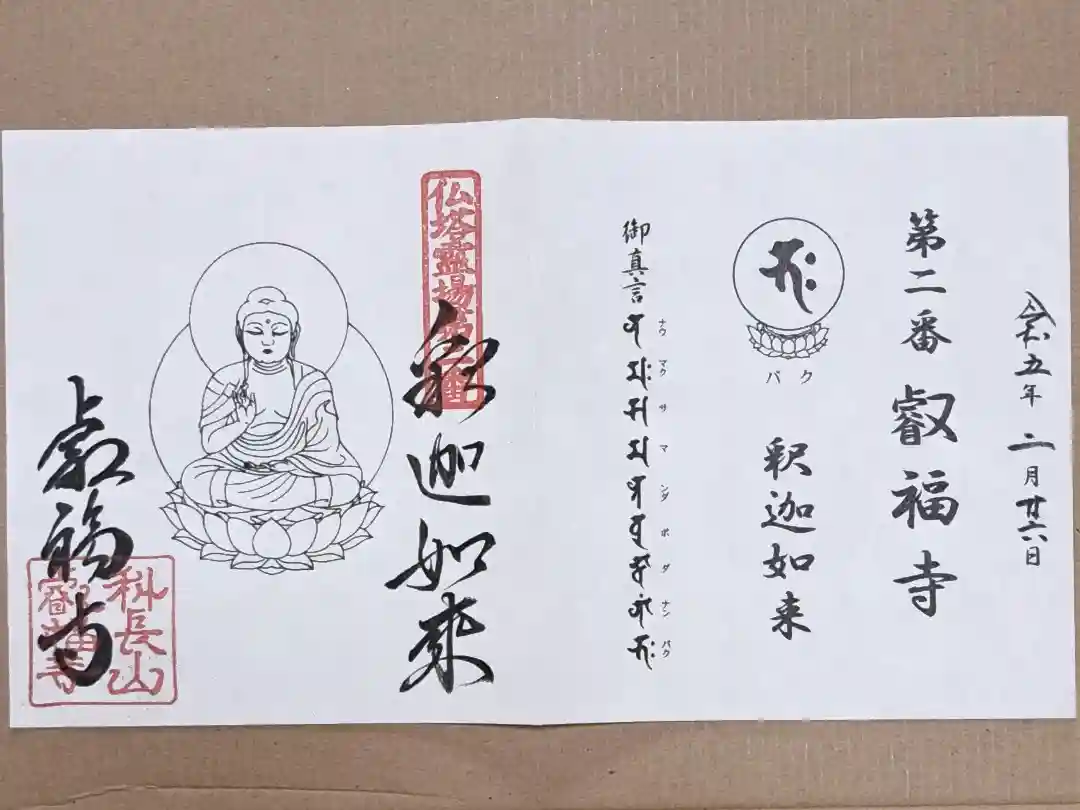 令和五年 二月廿六日
第二番 叡福寺
バク
釈迦如来
御真言
ナウ マク サ マ ンダ ボ ダ ナン バク
仏塔霊場第二番
釈迦如来
叡福寺
科長山
叡福寺